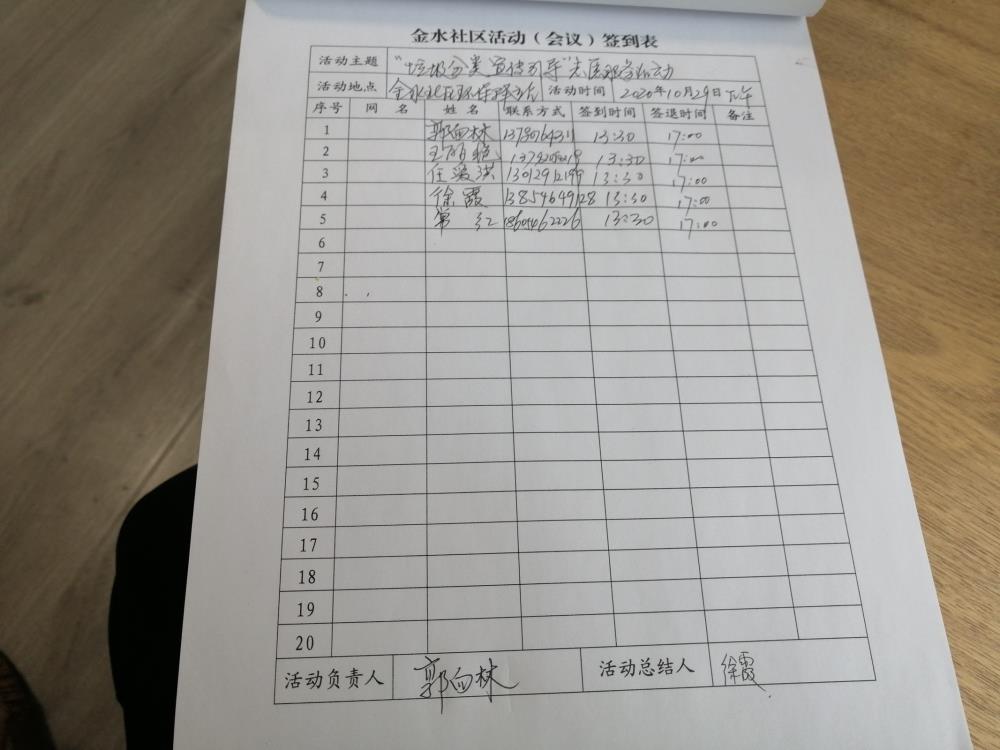 金水社区活动（会议）签到表
活动主题 “垃圾分类宣传引导”志愿服务活动
活动地点 金水社区环保 活动时间 2020年10月29日下午
序号 网 名 姓 名 联系方式 签到时间 签退时间 备注
1 郭向林 13:30 17:00
2 13:30 17:00
3 13:30 17:00
4 徐霞 13854649128 13:30 17:00
5 常红 18605462226 13:30 17:00
6
7
8
9
10
11
12
13
14
15
16
17
18
19
20
活动负责人 郭向林 活动总结人 徐霞